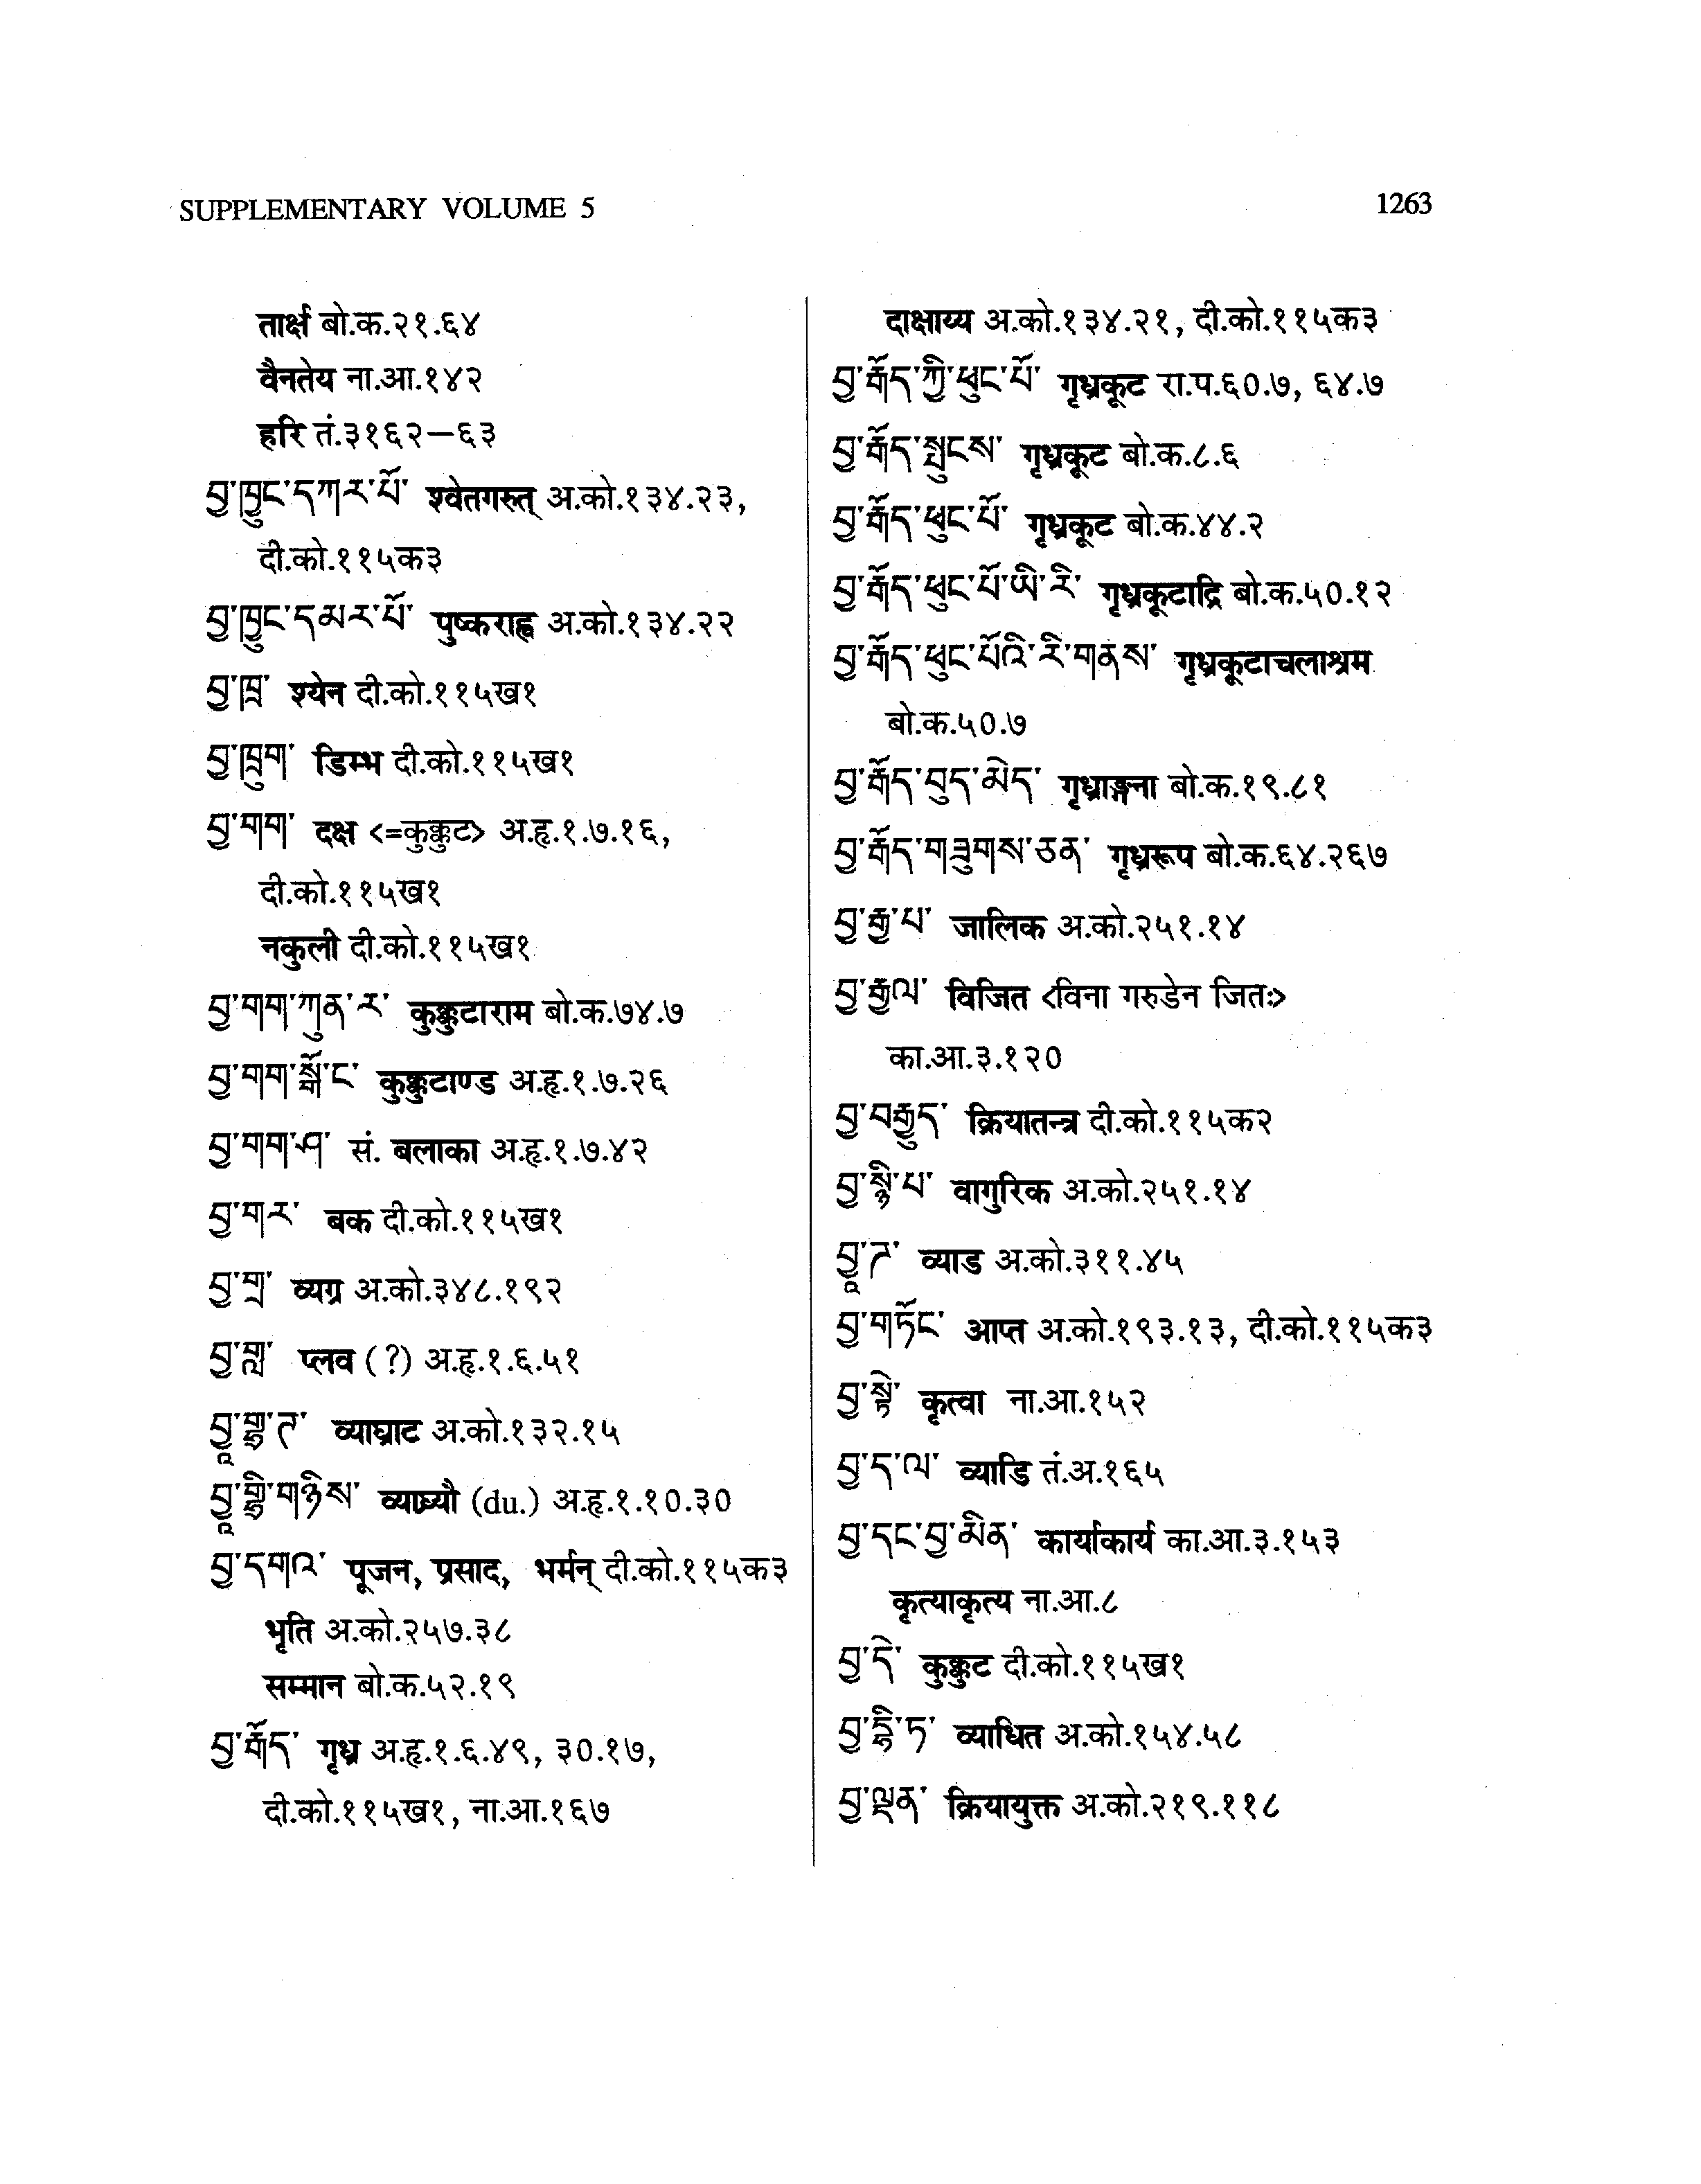 SUPPLEMENTARY VOLUME 5
1263
तार्क्ष बो.क.२१.६४
वैनतेय ना.आ.१४२
हरि तं.३१६२–६३
བྱ་ཁྱུང་དཀར་པོ་ श्वेतगरुत् अ.को.१३४.२३,
दी.को.११५क३
བྱ་ཁྱུང་དམར་པོ་ पुष्कराह्व अ.को.१३४.२२
བྱ་ཁྲ་ श्येन दी.को.११५ख१
བྱ་ཁྲུག་ डिम्भ दी.को.११५ख१
བྱ་གག་ दक्ष <=कुक्कुट> अ.हृ.१.७.१६,
दी.को.११५ख१
नकुली दी.को.११५ख१
བྱ་གག་ཀུན་ར་ कुक्कुटाराम बो.क.७४.७
བྱ་གག་སྒོ་ང་ कुक्कुटाण्ड अ.हृ.१.७.२६
བྱ་གག་ཤ་ सं. बलाका अ.हृ.१.७.४२
བྱ་གར་ बक दी.को.११५ख१
བྱ་གྲ་ व्यग्र अ.को.३४८.१९२
བྱ་གླ་ प्लव (?) अ.हृ.१.६.५१
བྱཱ་གྷྲ་ཊ་ व्याघ्राट अ.को.१३२.१५
བྱཱ་གྷྲི་གཉིས་ व्याघ्र्यौ (du.) अ.हृ.१.१०.३०
བྱ་དགའ་ पूजन, प्रसाद, भर्मन् दी.को.११५क३
भृति अ.को.२५७.३८
सम्मान बो.क.५२.१९
བྱ་རྒོད་ गृध्र अ.हृ.१.६.४९, ३०.१७,
दी.को.११५ख१, ना.आ.१६७
दाक्षाय्य अ.को.१३४.२१, दी.को.११५क३
བྱ་རྒོད་ཀྱི་ཕུང་པོ་ गृध्रकूट रा.प.६०.७, ६४.७
བྱ་རྒོད་སྤུངས་ गृध्रकूट बो.क.८.६
བྱ་རྒོད་ཕུང་པོ་ गृध्रकूट बो.क.४४.२
བྱ་རྒོད་ཕུང་པོ་ཡི་རི་ गृध्रकूटाद्रि बो.क.५०.१२
བྱ་རྒོད་ཕུང་པོའི་རི་གནས་ गृध्रकूटाचलाश्रम
बो.क.५०.७
བྱ་རྒོད་བུད་མེད་ गृध्राङ्गना बो.क.१९.८१
བྱ་རྒོད་གཟུགས་ཅན་ गृध्ररूप बो.क.६४.२६७
བྱ་རྒྱ་པ་ जालिक अ.को.२५१.१४
བྱ་རྒྱལ་ विजित <विना गरुडेन जितः>
का.आ.३.१२०
བྱ་བརྒྱུད་ क्रियातन्त्र दी.को.११५क२
བྱ་སྙི་པ་ वागुरिक अ.को.२५१.१४
བྱཱ་ཌ་ व्याड अ.को.३११.४५
བྱ་གཏོང་ आप्त अ.को.१९३.१३, दी.को.११५क३
བྱ་སྟེ་ कृत्वा ना.आ.१५२
བྱ་ད་ལ་ व्याडि तं.अ.१६५
བྱ་དང་བྱ་མིན་ कार्याकार्य का.आ.३.१५३
कृत्याकृत्य ना.आ.८
བྱ་དེ་ कुक्कुट दी.को.११५ख१
བྱ་དྷི་ཏ་ व्याधित अ.को.१५४.५८
བྱ་ལྡན་ क्रियायुक्त अ.को.२१९.११८